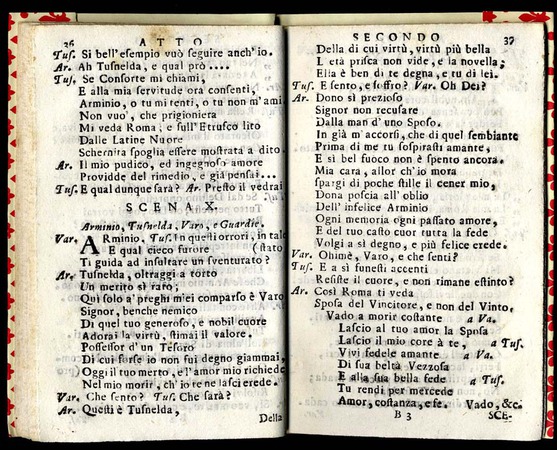 36 ATTO
Tus. Si bell'esempio vuò seguire anch'io.
Ar. Ah Tusnelda, e qual prò....
Tus. Se Consorte mi chiami,
E alla mia servitude ora consenti,
Arminio, o tu menti, o tu non m'ami
Non vuo', che prigioniera
Mi veda Roma, e sull'Etrusco lito
Dalle Latine Nuore
Schernita spoglia essere mostrata a dito.
Ar. Il mio pudico, ed ingegnoso amore
Providde del rimedio, e già pensai...
Tus. E qual dunque sarà? Ar. Presto il vedrai
SCENA X.
Arminio, Tusnelda, Varo, e Guardie.
Var. ARminio, Tus. In questi orrori, in tale
E qual cieco furore (stato
Ti guida ad insultare un sventurato?
Ar. Tusnelda, oltraggi a torto
Un merito sì raro;
Qui solo a' preghi miei comparso è Varo
Signor, benche nemico
Di quel tuo generoso, e nobil cuore
Adorai la virtù, stimai il valore.
Possessor d'un Tesoro
Di cui forse io non fui degno giammai,
Oggi il tuo merto, e l'amor mio richiede
Nel mio morir, ch'io te ne lasci erede.
Var. Che sento? Tus. Che sarà?
Ar. Questi è Tusnelda,
Della
SECONDO 37
Della di cui virtù, virtù più bella
L'età prisca non vide, e la novella;
Ella è ben di te degna, e tu di lei.
Tus. E sento, e soffro? Var. Oh Dei?
Ar. Dono sì prezioso
Signor non recusare
Dalla man d'uno Sposo.
In già m'accorsi, che di quel sembiante
Prima di me tu sospirasti amante,
E sì bel fuoco non è spento ancora.
Mia cara, allor ch'io mora
Spargi di poche stille il cener mio,
Dona poscia all'oblio
Dell'infelice Arminio
Ogni memoria ogni passato amore,
E del tuo casto cuor tutta la fede
Volgi a sì degno, e più felice erede.
Var. Ohimè, Varo, e che senti?
Tus. E a sì funesti accenti
Resiste il cuore, e non rimane estinto?
Ar. Così Roma ti veda
Sposa del Vincitore, e non del Vinto,
Vado a morir costante a Va.
Lascio al tuo amor la Sposa
Lascio il mio core à te, a Tus.
Vivi fedele amante a Va.
Di sua beltà Vezzosa
E alla sua bella fede a Tus.
Tu rendi per mercede
Amor, costanza, e fe. Vado, &c.
B 3 SCE-